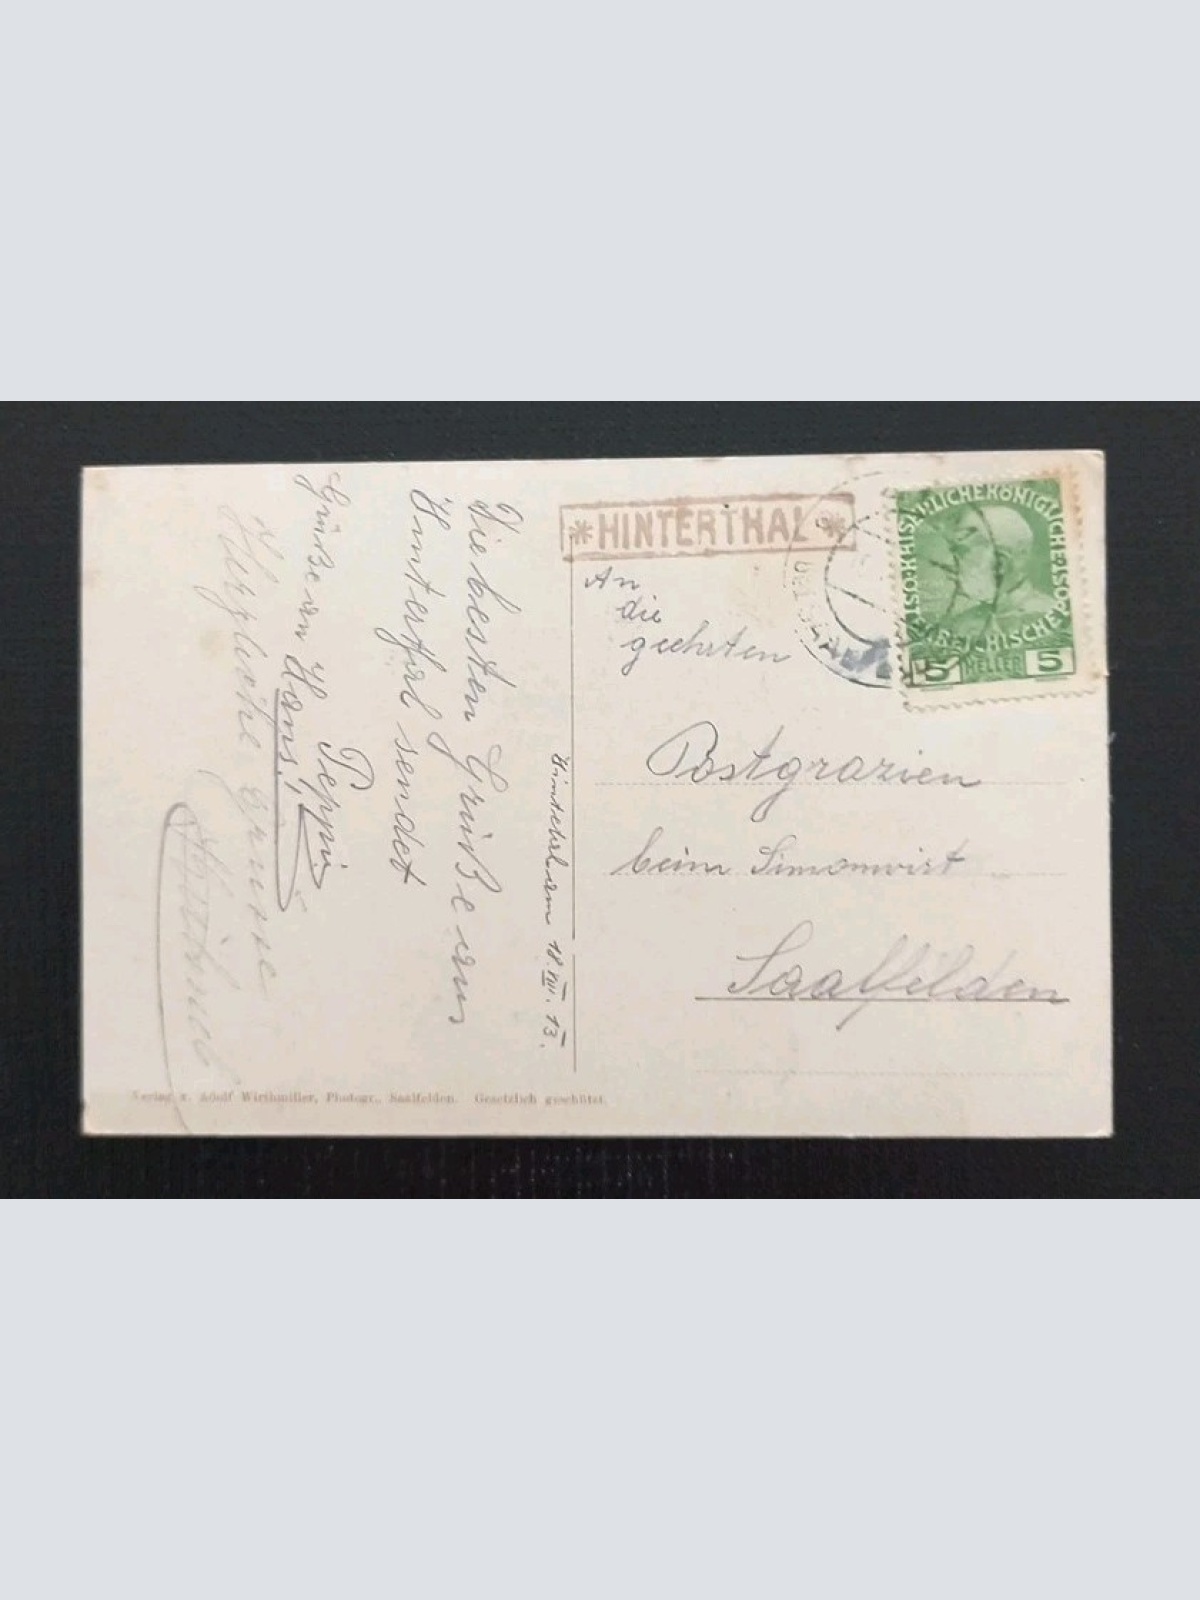 *HINTERTHAL*
KAISERLICHE KÖNIGLICHE
ÖSTERREICHISCHE POST
5 HELLER 5
An
die
geehrten
Postgrazien
beim Simonwirt
Saalfelden
18. VIII. 13.
Die besten Grüße aus
Hintertal sendet
Peppi
Grüße an Hans!
Herzliche Grüsse
Verlag v. Adolf Wirthmiller, Photogr., Saalfelden. Gesetzlich geschützt.